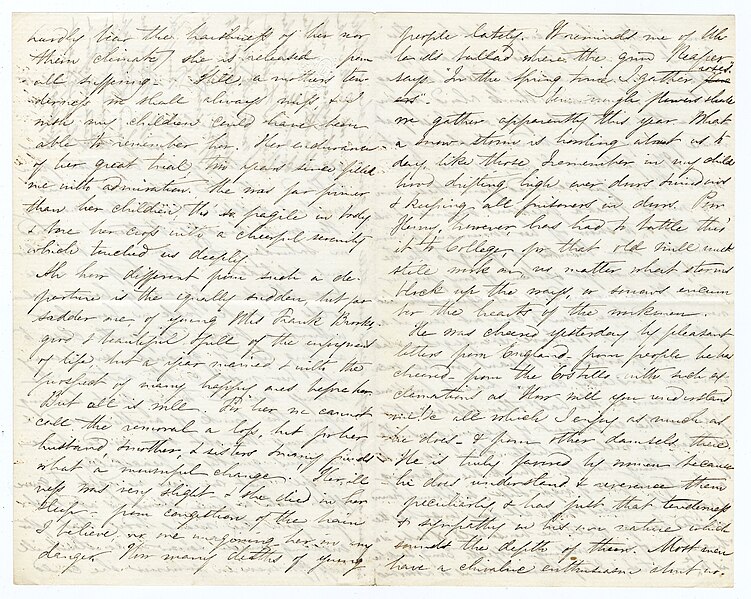 hardly bear the harshness of her nor
thern climate, she is released from
all suffering. Still, a mothers ten
derness we shall always miss & I
wish my children could have been
able to remember her. Her endurance
of her great trial two years since filled
me with admiration. She was far firmer
than her children, tho' so fragile in body
& bore her cross with a cheerful serenity
which touched us deeply.
Ah how different from such a de-
parture is the equally sudden, but far
sadder one of young Mrs Frank Brooks
good & beautiful & full of the enjoyment
of life but a year married & with the
prospect of many happy ones before her
But all is well. For her we cannot
call the removal a loss, but for her
husband, mother, & sisters & many friends
what a mournful change. Her ill
ness was very slight & she died in her
sleep from congestion of the brain
I believe, no one imagining her in any
danger. How many deaths of young
people lately. It reminds me of Uh
land's ballad where the grim Reaper
says "In the spring time I gather
roses".
enough flowers should
we gather apparently this year. What
a snow-storm is howling about us to
day, like those I remember in my child
hood drifting high over doors & windows
& keeping all prisoners in doors. Poor
Henry, however, has had to battle thro'
it to College, for that old mill must
still work on, no matter what storms
block up the ways, or sorrows encum
ber the hearts of the workmen.
He was cheered yesterday by pleasant
letters from England, from people he has
cheered from the Costello, with such ex
clamations as "How well you understand
us" &c all which I enjoy as much as
he does & from other damsels there
He is truly favored by women because
he does understand & reverence them
peculiarly & has just that tenderness
& sympathy in his own nature which
sounds the depth of theirs. Most men
have a chivalric enthusiasm about us,